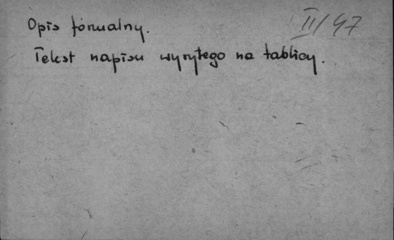 Opis formalny.
II/47
Tekst napisu wyrytego na tablicy.